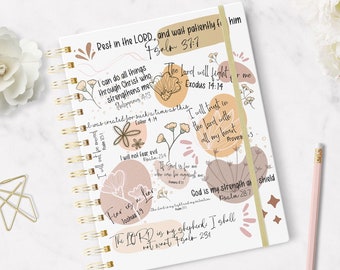 Rest in the LORD, and wait patiently for him
Psalm 37:7
I can do all things
through Christ who
strengthens me
Philippians 4:13
The Lord will fight for me
Exodus 14:14
I was created for such a time as this
Esther 4:14
I will trust in
the Lord with
all my heart
Proverbs
I will not fear evil
Psalm 23:4
God is for me
God is my strength and shield
Psalm 28:7
Fear is a liar
Joshua 1:9
The LORD is my shepherd; I shall
not want. Psalm 23:1